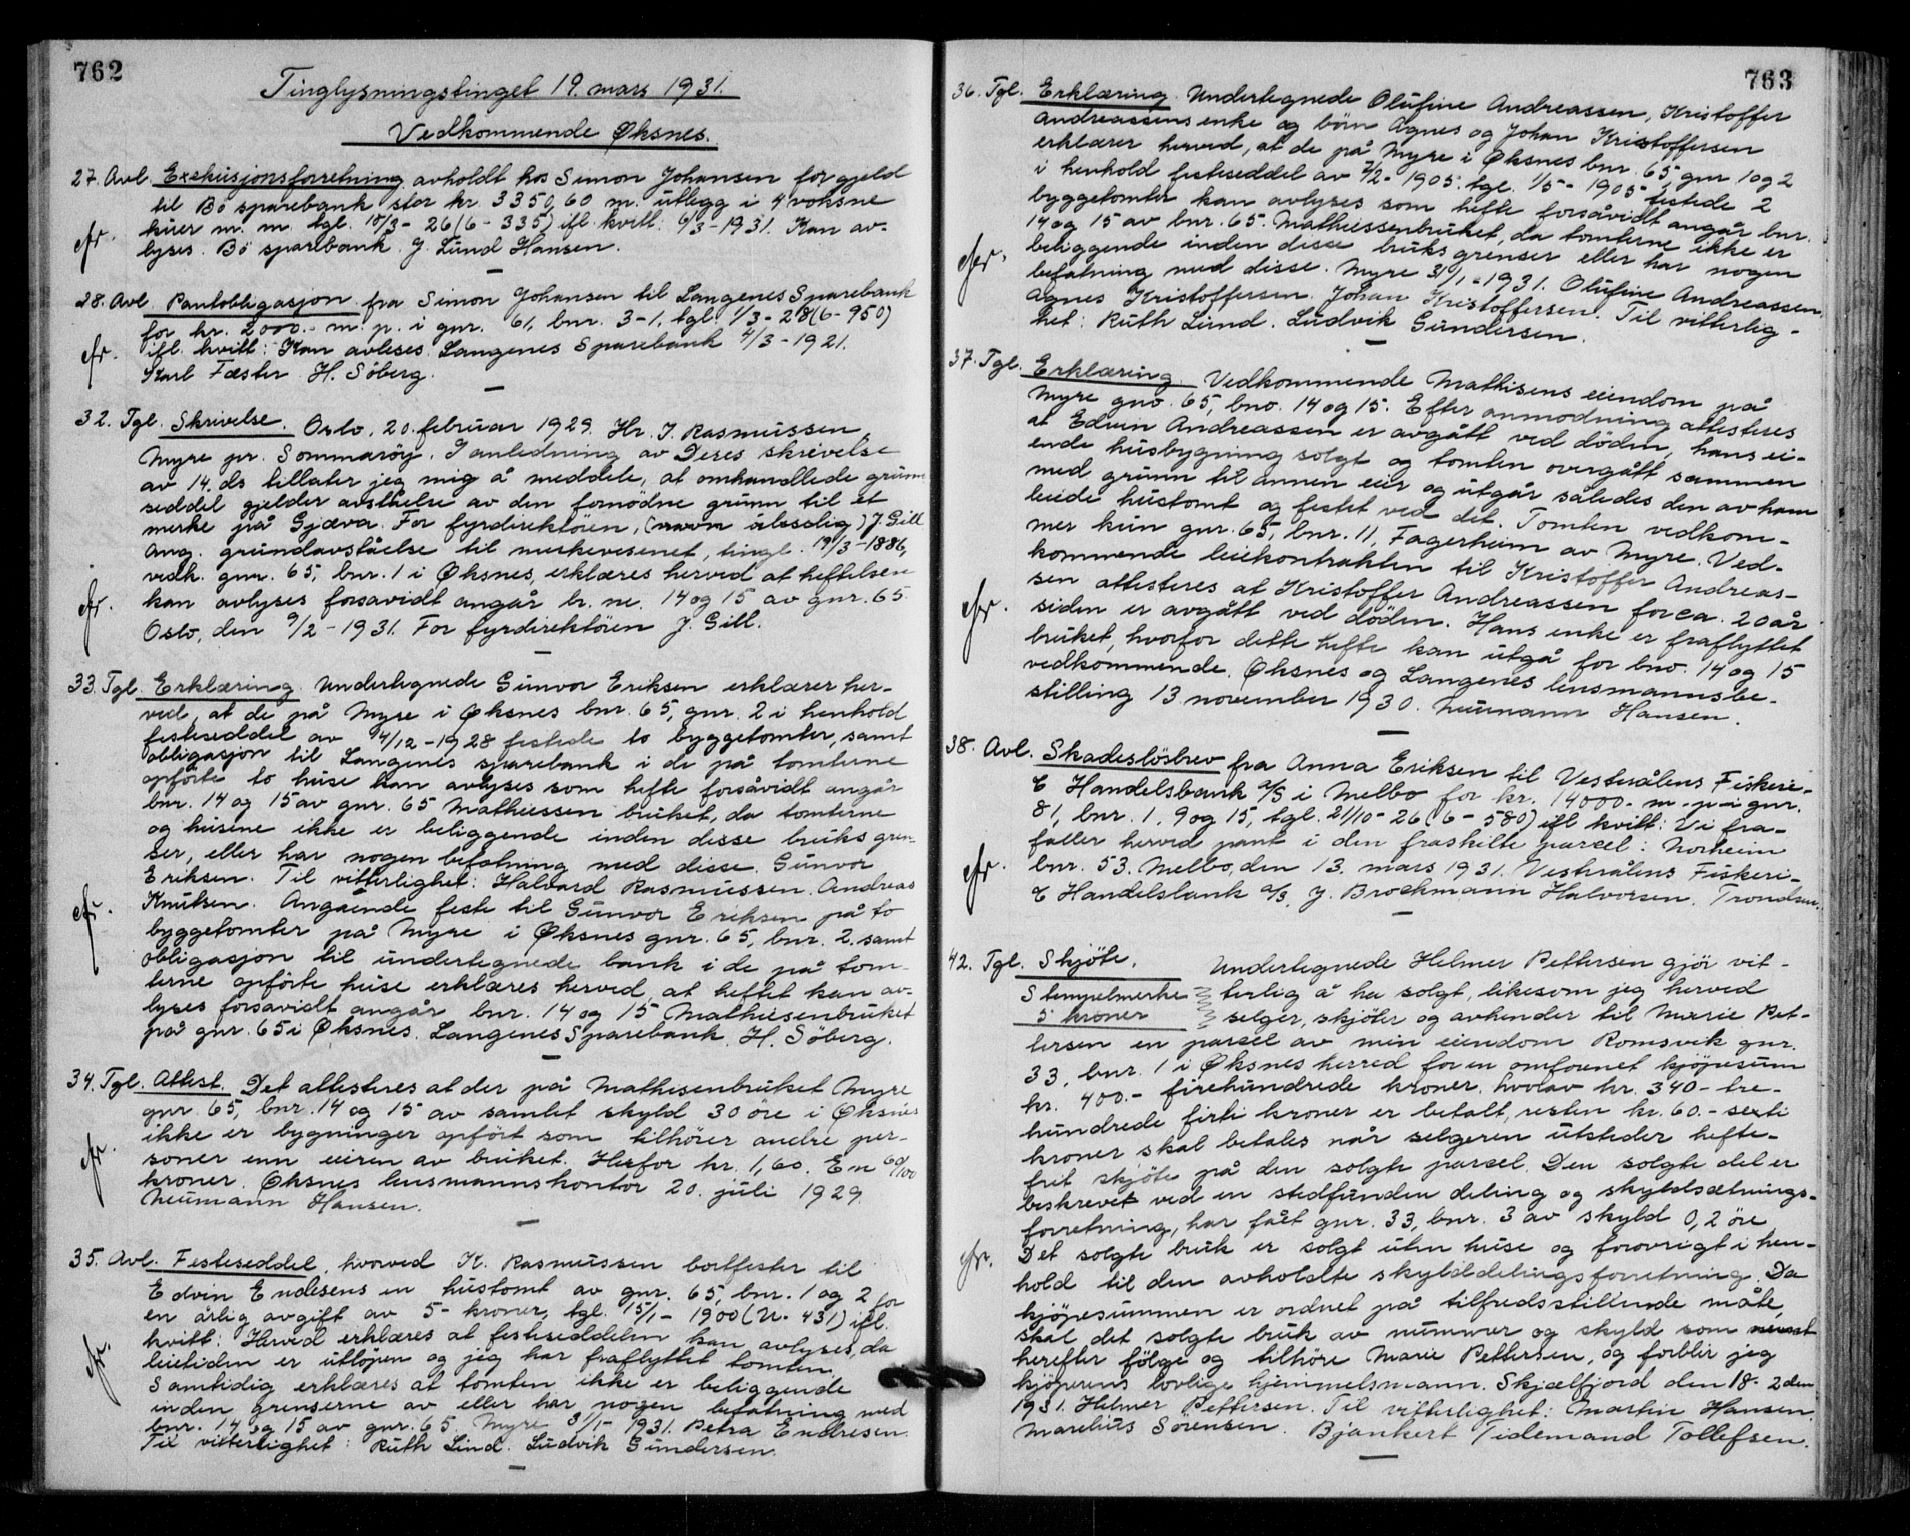 762
Tinglysningstinget 19. mars 1931.
Vedkommende Øksnes.
27. Avl. Exekusjonsforretning avholdt hos Simon Johansen for gjeld
til Bö sparebank stor kr. 3350,60 m. utlegg i 4 voksne
kuer m. m. tgl. 18/3-26 (6-335) ifl. kvitt. 6/3-1931. Kan av-
lyses. Bö sparebank J. Lund Hansen.
28. Avl. Pantobligasjon fra Simon Johansen til Langenes Sparebank
for kr. 2000.- m. p. i gnr. 61, bnr. 3-1, tgl. 1/3-28 (6-950)
ifl. kvitt: Kan avleses. Langenes Sparebank 4/3-1921.
Karl Fæster H. Söberg.
32. Tgl. Skrivelse. Oslo, 20. februar 1929. Hr. J. Rasmussen,
Myre pr. Sommaröy. I anledning av Deres skrivelse
av 14. ds tillater jeg mig å meddele, at omhandlede grunn
seddel gjelder avståelse av den fornödne grunn til et
merke på Gjæva. For fyrdirektören, (navn uleselig) J. Gill
Ang. grundavståelse til merkevesenet, tingl. 19/3-1886,
vedk. gnr. 65, bnr. 1 i Øksnes, erklæres herved at heftelsen
kan avlyses forsavidt angår br. nr. 14 og 15 av gnr. 65.
Oslo, den 9/2-1931. For fyrdirektöen J. Gill.
33. Tgl. Erklæring. Undertegnede Gunvor Eriksen erklærer her-
ved, at de på Myre i Øksnes bnr. 65, gnr. 2 i henhold
festeseddel av 14/12-1928 festede to byggetomter, samt
obligasjon til Langenes sparebank i de på tomterne
opförte to huse kan avlyses som hefte forsåvidt angår
bnr. 14 og 15 av gnr. 65 Mathiessen bruket, da tomterne
og husene ikke er beliggende inden disse bruks gren-
ser, eller har nogen befatning med disse. Gunvor
Eriksen. Til vitterlighet: Halvard Rasmussen. Andreas
Knutsen. Angående feste til Gunvor Eriksen på to
byggetomter på Myre i Øksnes gnr. 65, bnr. 2. samt
obligasjon til undertegnede bank i de på tom-
terne opförte huse erklæres herved, at heftet kan av-
lyses forsavidt angår bnr. 14 og 15 Mathiesenbruket
på gnr. 65 i Øksnes. Langenes Sparebank. H. Söberg.
34. Tgl. Attest. Det attesteres at der på Mathisenbruket Myre
gnr. 65, bnr. 14 og 15 av samlet skyld 30 öre i Øksnes
ikke er bygninger opfört som tilhörer andre per-
soner enn eieren av bruket. Herfor kr. 1,60. En 60/100
kroner. Øksnes lensmannskontor 20. juli 1929.
Neumann Hansen.
35. Avl. Festeseddel, hvorved K. Rasmussen bortfester til
Edvin Endresens en hustomt av gnr. 65, bnr. 1 og 2 for
en årlig avgift av 5- kroner, tgl. 15/1-1900 (U. 431) ifl.
kvitt: Herved erklæres at festeseddelen kan avlyses, da
leietiden er utlöpen og jeg har fraflyttet tomten.
Samtidig erklæres at tomten ikke er beliggende
inden grenserne av eller har nogen befatning med
bnr. 14 og 15 av gnr. 65. Myre 31/1-1931. Petra Endresen.
Til vitterlighet: Ruth Lind. Ludvik Gundersen.
763
36. Tgl. Erklæring. Undertegnede Olufine Andreassen, Kristoffer
Andreassens enke og börn Agnes og Johan Kristoffersen
erklærer herved, at de på Myre i Øksnes bnr. 65 gnr 1 og 2
i henhold festeseddel av 7/2-1905. tgl. 1/5-1905 festede 2
byggetomter kan avlyses som hefte forsåvidt angår bnr.
14 og 15 av bnr. 65. Mathiessenbruket, da tomterne ikke er
beliggende inden disse bruks grenser eller har nogen
befatning med disse. Myre 31/1-1931. Olufine Andreassen.
Agnes Kristoffersen. Johan Kristoffersen. Til vitterlig-
het: Ruth Lund. Ludvik Gundersen.
37. Tgl. Erklæring Vedkommende Mathisens eiendom på
Myre gno. 65, bno. 14 og 15. Efter anmodning attesteres
at Edvin Andreassen er avgått ved döden, hans ei-
ende husbygning solgt og tomten overgått sammen
med grunn til annen eier og utgår således den av ham
leiede hustomt og festet ved det. Tomten vedkom-
mer kun gnr. 65, bnr. 11, Fagerheim av Myre. Ved-
kommende leiekontrakten til Kristoffer Andreas-
sen attesteres at Kristoffer Andreassen for ca. 20 år
siden er avgått ved döden. Hans enke er fraflyttet
bruket, hvorfor dette hefte kan utgå for bno. 14 og 15
vedkommende. Øksnes og Langenes lensmannsbe-
stilling 13 november 1930. Neumann Hansen.
38. Avl. Skadeslösbrev fra Anna Eriksen til Vesterålens Fiskeri-
& Handelsbank A/S i Melbo for kr. 14000.- m. p. i gnr.
81, bnr. 1, 9 og 15, tgl. 21/10-26 (6-580) ifl kvitt: Vi fra-
faller herved pant i den fraskilte parcel: Norheim
bnr. 53. Melbo, den 13. mars 1931. Vesteålens Fiskeri-
& Handelsbank a/s, J. Brockmann Halvorsen. Trondsen.
42. Tgl. Skjöte. Undertegnede Helmer Pettersen gjör vit-
Stempelmerke terlig å ha solgt, likesom jeg herved
5 kroner selger, skjöter og avhender til Marie Pet-
tersen en parcel av min eiendom Romsvik gnr.
33, bnr. 1 i Øksnes herred for en omforenet kjöpesum
kr. 400.- firehundrede kroner, hvorav kr. 340- tre-
hundrede firti kroner er betalt, resten kr. 60.- sexti
kroner skal betales når selgeren utsteder hefte-
frit skjöte på den solgte parcel. Den solgte del er
beskrevet ved en stedfunden deling og skyldsætnings-
forretning, har fått gnr. 33, bnr. 3 av skyld 0,2 öre
Det solgte bruk er solgt uten huse og forövrigt i hen-
hold til den avholdte skylddelingsforretning. Da
kjöpesummen er ordnet på tilfredsstillende måte,
skal det solgte bruk av nummer og skyld som nevnt
herefter fölge og tilhöre Marie Pettersen, og forblir jeg
kjöperens lovlige hjemmelsmann. Skjælfjord den 18. 2den
1931. Helmer Pettersen. Til vitterlighet: Martin Hansen.
Marelius Sörensen. Bjankert Tidemand Tollefsen.